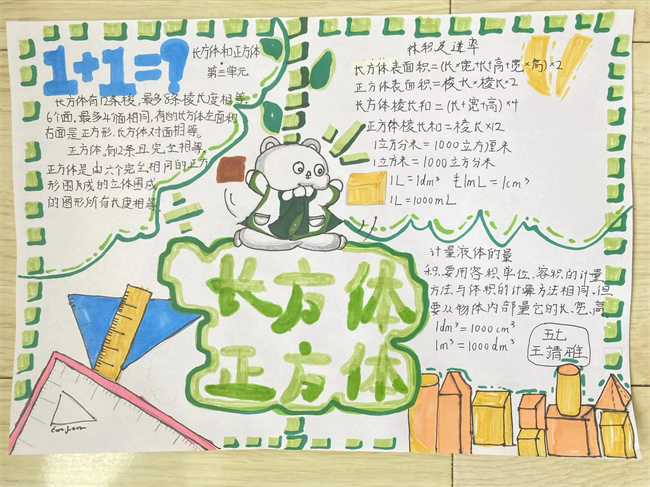 1+1=?
长方体和正方体
第三单元
长方体有12条棱,最多8条棱长度相等,
6个面,最多4个面相同,有的长方体左面和
右面是正形.长方体对面相等。
正方体。有12条且完全相等。
正方体是由六个完全相同的正方
形围成的立体图成
的图形所有长度相等
体积及进率
长方体表面积=(长×宽+长×高+宽×高)×2
正方体表面积=棱长×棱长×2
长方体棱长和=(长+宽+高)×4
正方体棱长和=棱长×12
1立方分米=1000立方厘米
1立方米=1000立方分米
1L=1dm³ 1mL=1cm³
1L=1000mL
长方体
正方体
计量液体的量
积,要用容积单位,容积的计量
方法与体积的计算方法相同,但
要从物体内部量它的长、宽、高
1dm³=1000cm³
1m³=1000dm³
五七
王靖雅